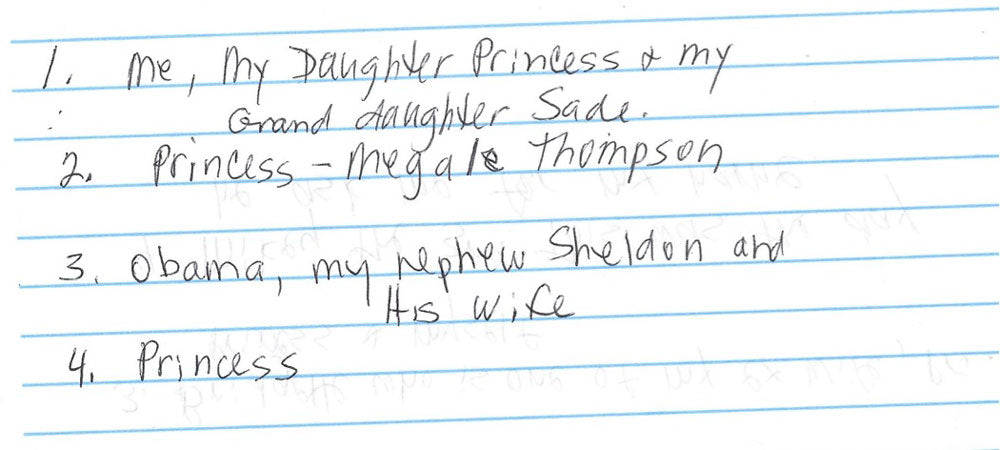 1. Me, My Daughter Princess & my
Grand daughter Sade.
2. Princess - Megale Thompson
3. Obama, my nephew Sheldon and
His wife
4. Princess